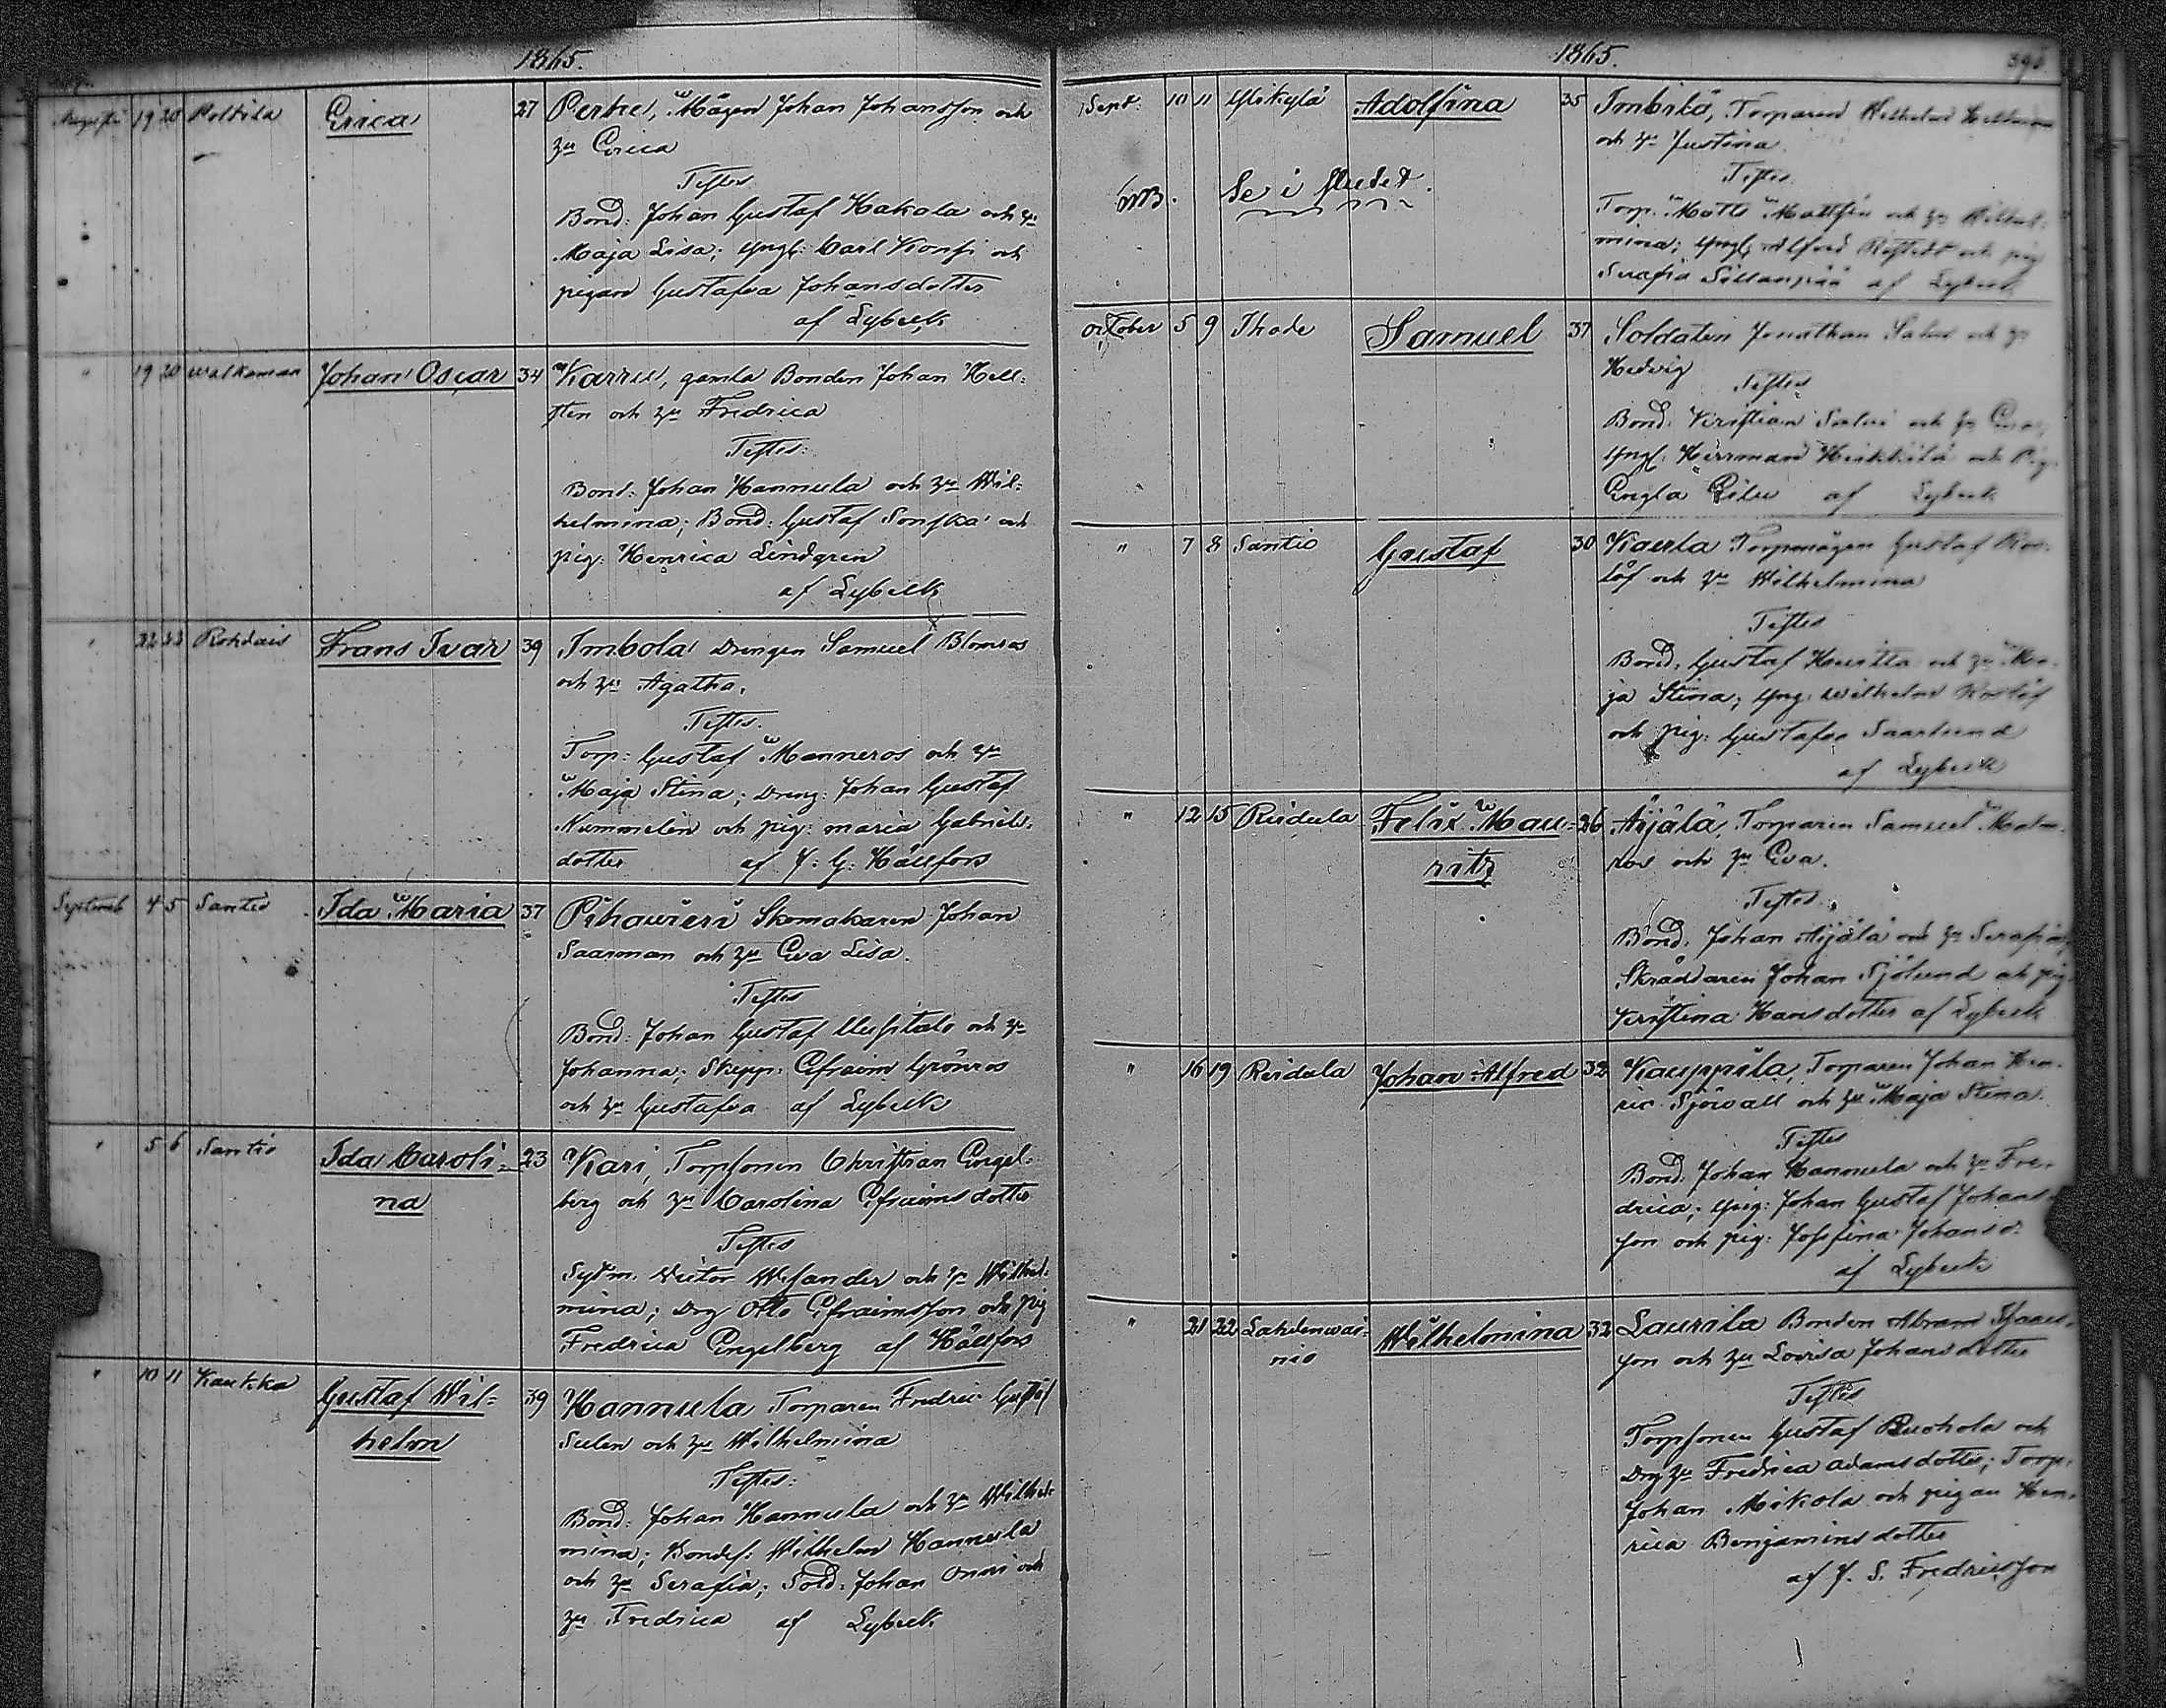 1865.
Augusti 19 20 Poltila Erica 27 Perhe, Mågen Johan Johansson och
hu Erica
Testes
Bond: Johan Gustaf Hakala och hu
Maja Lisa; Yngl: Carl Konsi och
pigan Gustafva Johansdotter
af Lybeck
" 19 20 Walkeman Johan Oscar 34 Karru, gamla Bonden Johan Hell-
sten och hu Fredrica
Testes:
Bond: Johan Hannula och hu Wil-
helmina; Bond: Gustaf och
pig: Henrica Lindgren
af Lybeck
" 22 23 Rohdais Frans Ivar 39 Imbola Drengen Samuel Blomros
och hu Agatha.
Testes.
Torp: Gustaf Manneros och hu
Maja Stina; Dreng: Johan Gustaf
Nummelin och pig: Maria Gabriels-
dotter af J: G: Hällfors
Septemb 4 5 Santio Ida Maria 37 Pihavieri Skomakaren Johan
Saarman och hu Eva Lisa.
Testes
Bond: Johan Gustaf Uusitalo och hu
Johanna; Skepp: Efraim Grönros
och hu Gustafva af Lybeck
" 5 6 Santio Ida Caroli- 23 Kari, Torpsonen Christian Engel-
na berg och hu Carolina Efraimsdotter
Testes
Sydm. Victor Wesander och hu Wilhel-
mina; Drg Otto Efraimsson och pig
Fredrica Engelberg af Hällfors
" 10 11 Kaukka Gustaf Wil- 39 Hannula Torparen Fredric Gustaf
helm Selen och hu Wilhelmina
Testes:
Bond: Johan Hannula och hu Wilhel-
mina; Bondes: Wilhelm Hannula
och hu Serafia; Sold: Johan Onni och
hu Fredrica af Lybeck
1865.
Sept. 10 11 Ylikylä Adolfina 35 Imbilä, Torparen Wilhelm
och hu Justina
Testes.
NB. Se i slutet.
Torp. Matts Mattsén och hu Wilhel-
mina; Yngl. Alfred och pig
Serafia Sillanpää af Lybeck
October 5 9 Thode Samuel 37 Soldaten Jonathan Salin och hu
Hedvig
Testes
Bond. Kristian och hu
Yngl. Herrman Heikkilä och Pig.
Engla af Lybeck
" 7 8 Santio Gustaf 30 Kaerla Torpmågen Gustaf Ros-
löf och hu Wilhelmina
Testes
Bond. Gustaf Heurtta och hu Ma-
ja Stina; Yng: Wilhelm Roslöf
och pig: Gustafva Saarlund
af Lybeck
" 12 15 Riidula Felix Mau- 26 Äijälä, Torparen Samuel Malm-
ritz ros och hu Eva.
Testes.
Bond. Johan Äijälä och hu Serafia,
Skräddaren Johan Sjölund och pig
Kristina Hansdotter af Lybeck
" 16 19 Riidula Johan Alfred 32 Kauppila, Torparen Johan Hen-
ric Sjöwall och hu Maja Stina.
Testes
Bond. Johan Hannula och hu Fre-
drica; Yng: Johan Gustaf Johans-
son och pig: Josefina Johansd.
af Lybeck
" 21 22 Lahdenwai- Wilhelmina 32 Laurila Bonden Abram Isaac-
nio son och hu Lovisa Johansdotter
Testes
Torpsonen Gustaf Ruohola och
Drg hu Fredrica Adamsdotter; Torp.
Johan Mikola och pigan Hen-
rica Benjaminsdotter
af J. S. Fredricsson